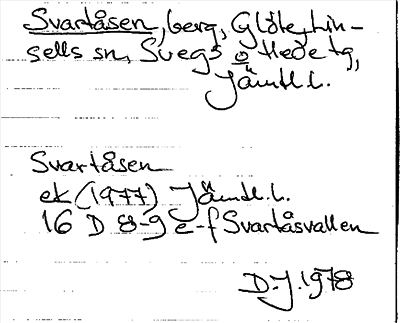 Svartåsen, berg, Glöte, Lin-
sells sn, Svegs o Hede tg,
Jämtl.l.
Svartåsen
ek (1977) Jämtl.l.
16 D 8-9 e-f Svartåsvallen
D.J. 1978